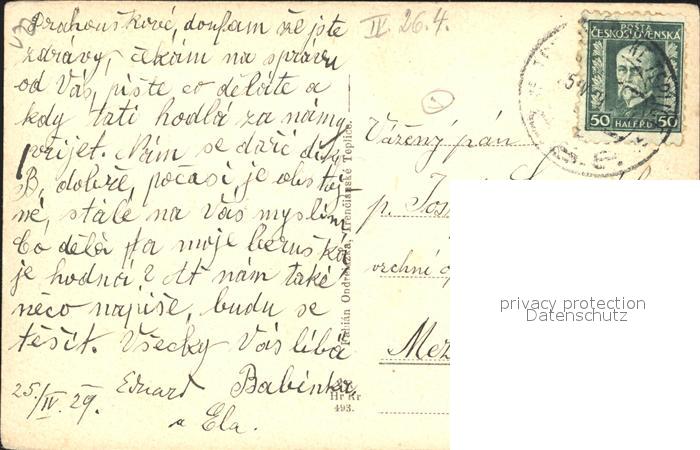 Drahouškové, doufám že jste
zdrávy, čekám na zprávu
od Vás, pište co děláte a
kdy tati hodlá za námy
přijet. Nám se daří díky
B. dobře, počasí je obstoj
né, stále na Vás myslím
Co dělá ta moje beruška
je hodná? Ať nám také
něco napíše, budu se
těšit. Všecky Vás líbá
25./IV. 29. Eduard Babinka
a Ela.
IV. 26.4.
POŠTA
ČESKOSLOVENSKA
50 HALÉŘŮ 50
Trenčianské Teplice.
Hr Kr
493.
Vážený pán
p.
vrchní
Mez
privacy protection
Datenschutz